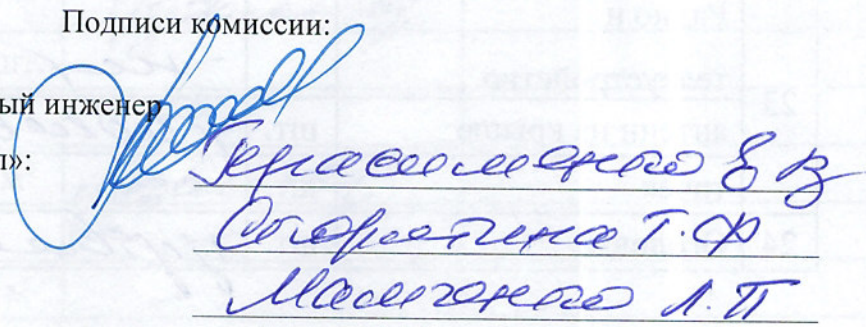 Подписи комиссии:
ый инженер
л»:
Герасименко Е В
Старотина Т.Ф
Мамченко Л.П